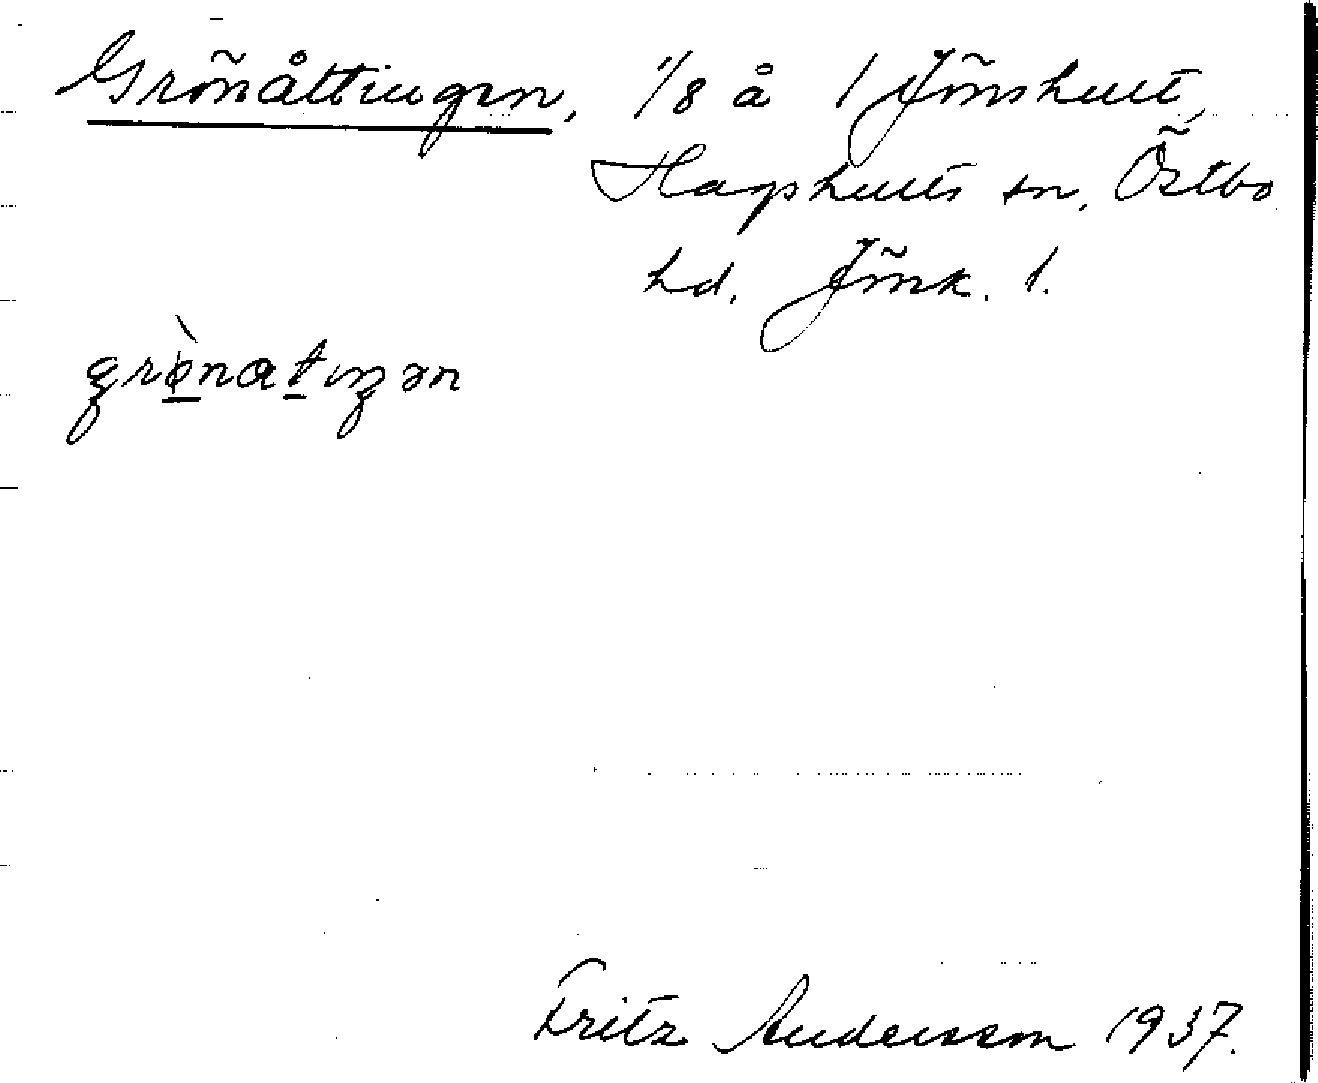 Grönåttingen, 1/8 å 1 Jönshult,
Hagshults sn, Östbo
hd. Jönk. l.
grǿ̀natiŋən
Fritz Andersson 1937.